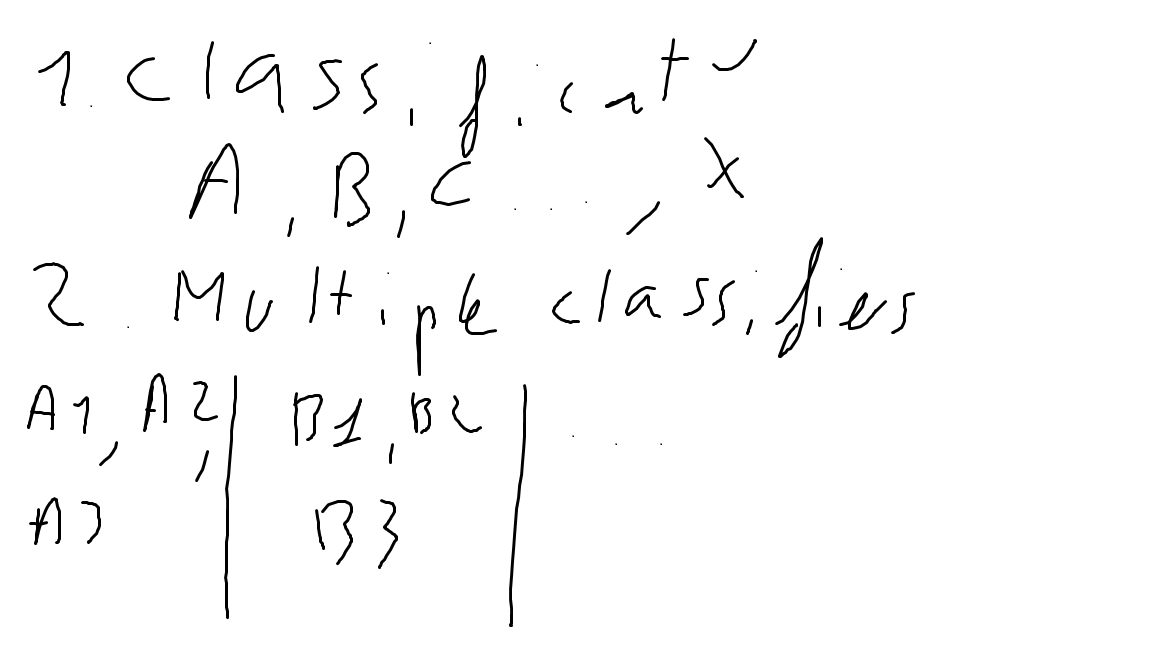 1. classificat
A, B, C ..., X
2. Multiple classifiers
A1, A2, | B1, B2 | ...
A3 | B3